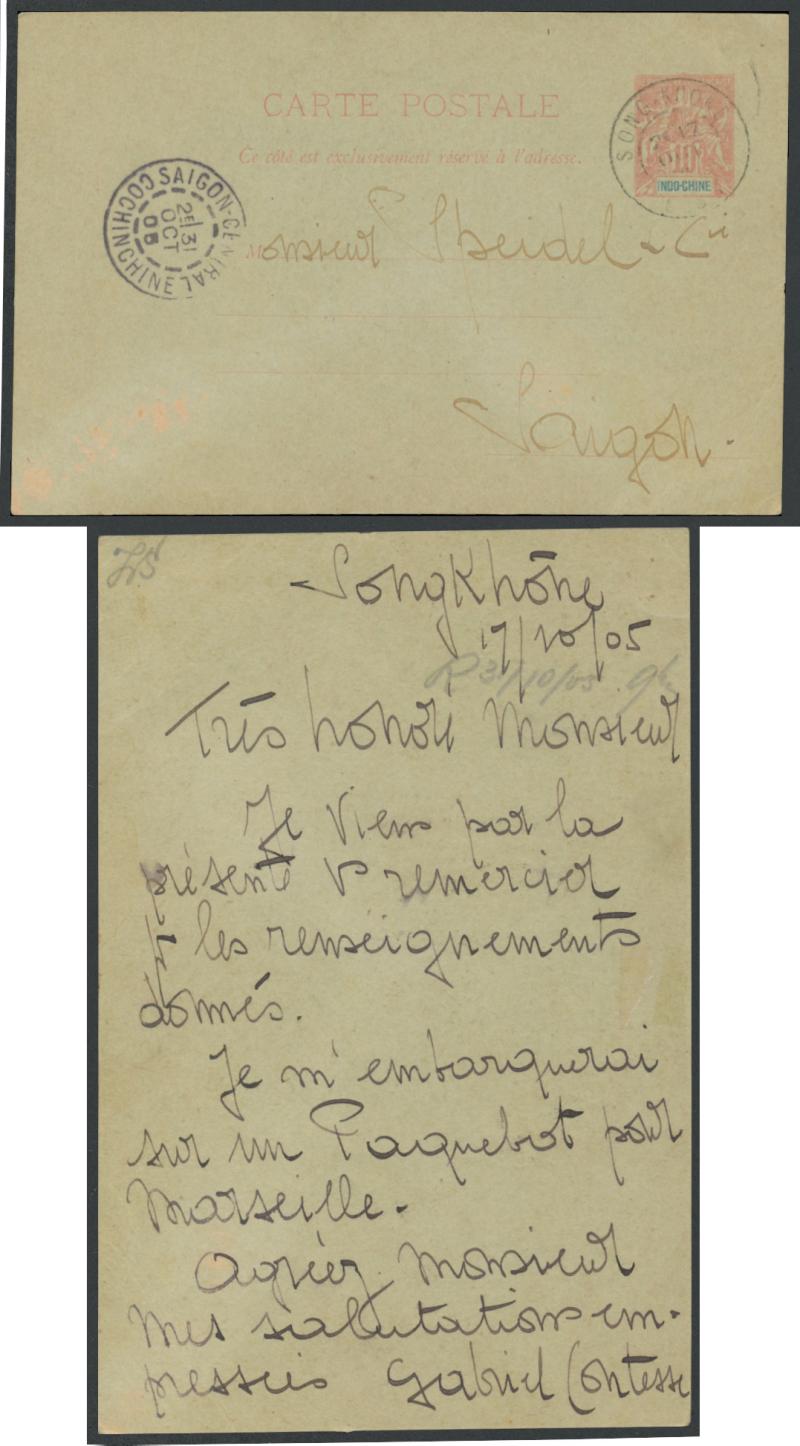 CARTE POSTALE
Ce côté est exclusivement réservé à l'adresse.
SONG-KHONE
10
INDO-CHINE
SAIGON-CENTRAL
2E/31
OCT
05
COCHINCHINE
Monsieur Speidel & Cie
Saigon.
SongKhône
17/10/05
R 31/10/05
Très honoré Monsieur
Je viens par la
présente vs remercier
pr les renseignements
donnés.
Je m'embarquerai
sur un Paquebot pour
Marseille.
Agréez Monsieur
mes salutations em-
pressées Gabriel Contesse